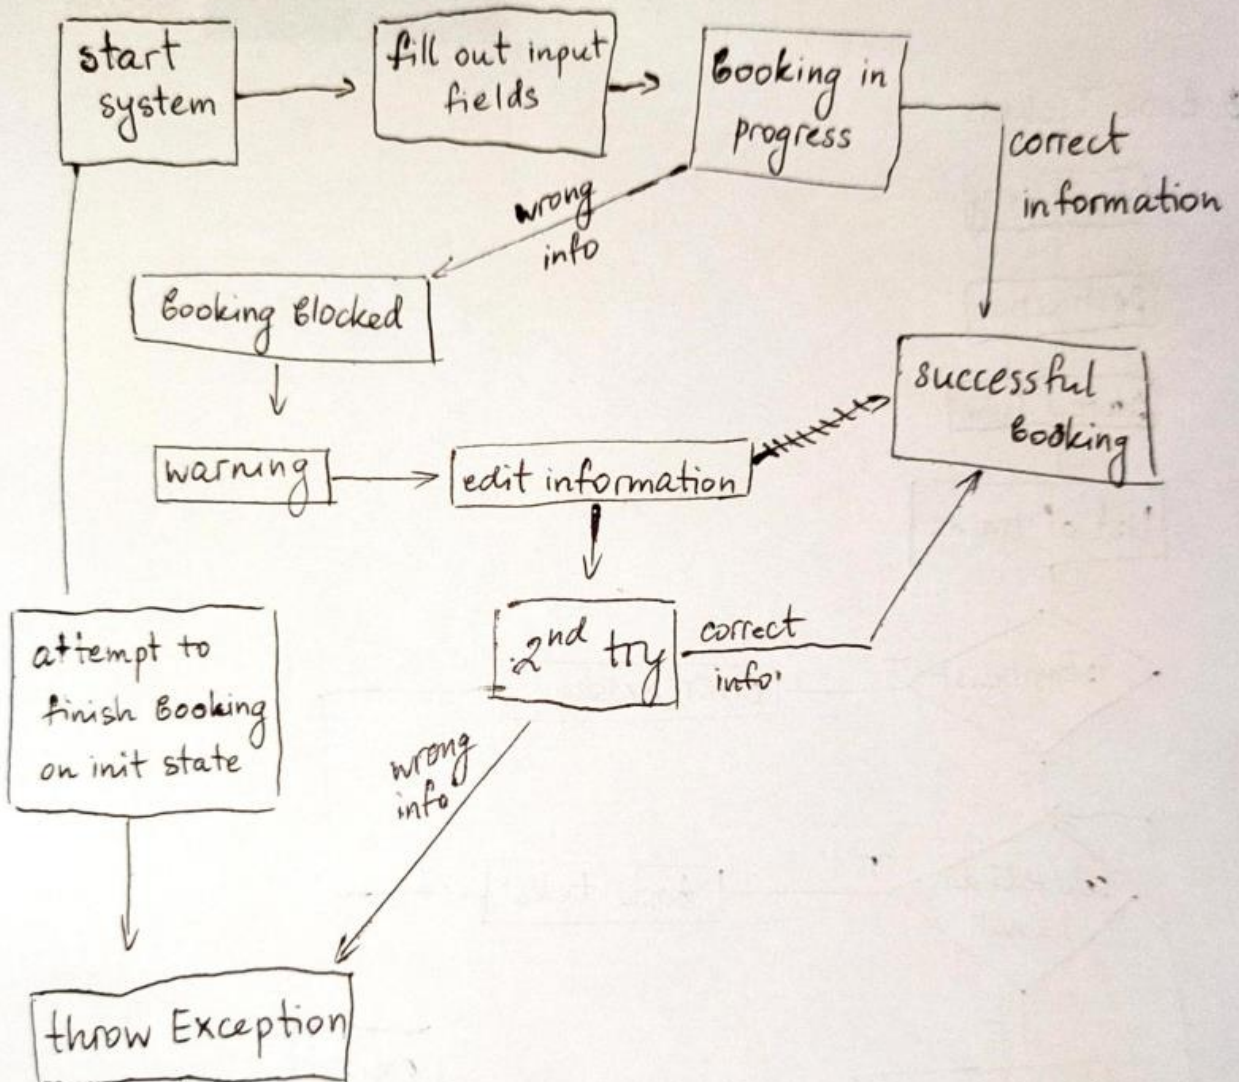 start
system
fill out input
fields
Booking in
progress
correct
information
wrong
info
Booking Blocked
successful
Booking
warning
edit information
2nd try
correct
info.
attempt to
finish Booking
on init state
wrong
info
throw Exception